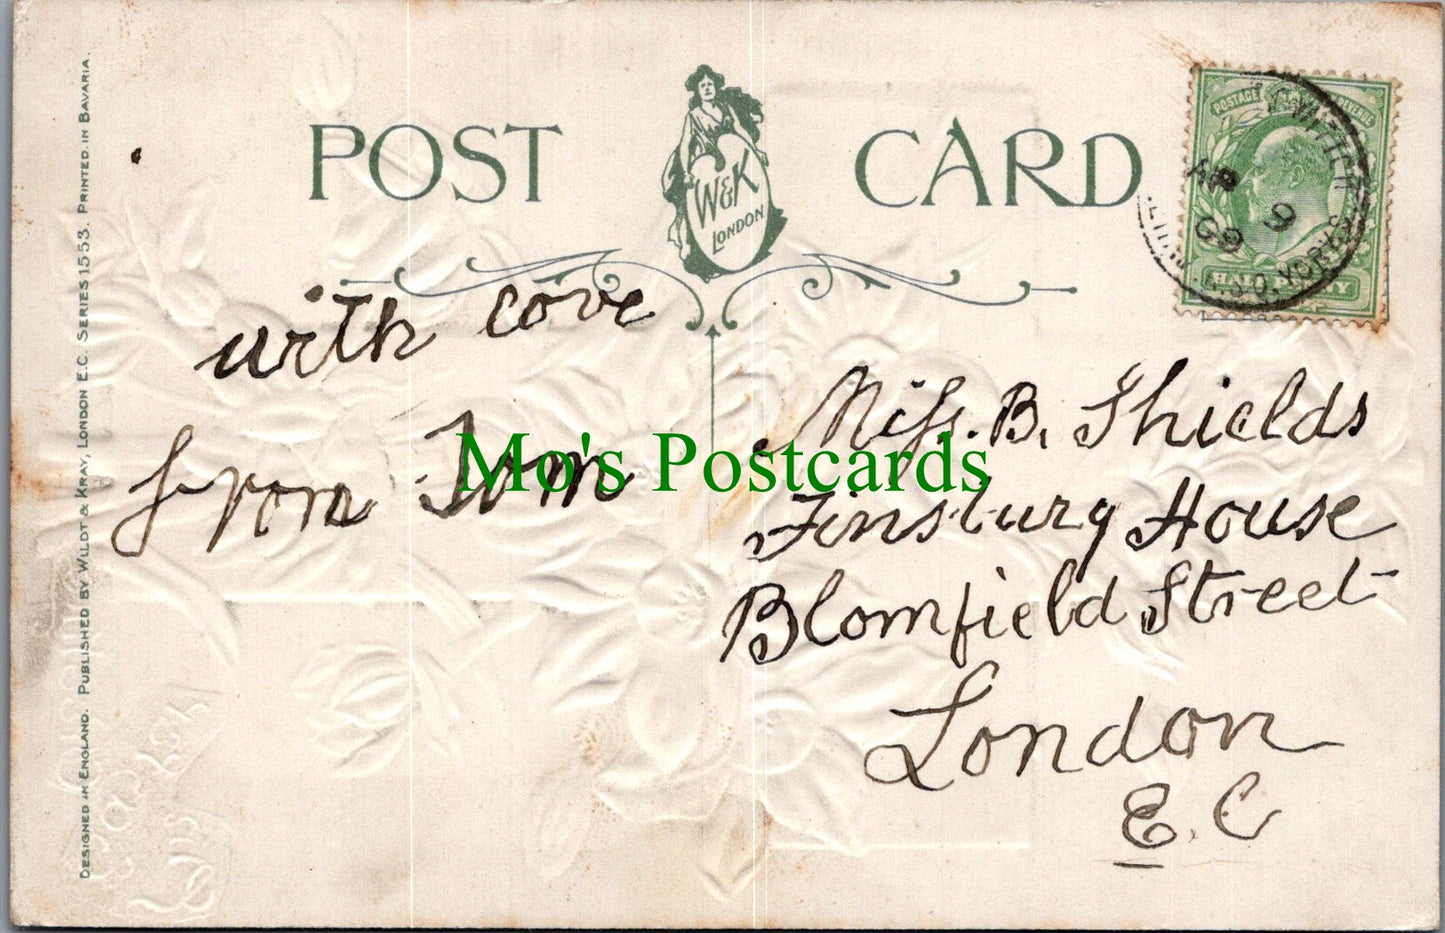 POST CARD
W&K
LONDON
POSTAGE REVENUE
HALF PENNY
AP 9
09
S.O. YORKS
with love
from Tom
Miss. B. Shields
Finsburg House
Blomfield Street
London
E.C
Mo's Postcards
DESIGNED IN ENGLAND. PUBLISHED BY WILDT & KRAY, LONDON E.C. SERIES 1553. PRINTED IN BAVARIA.